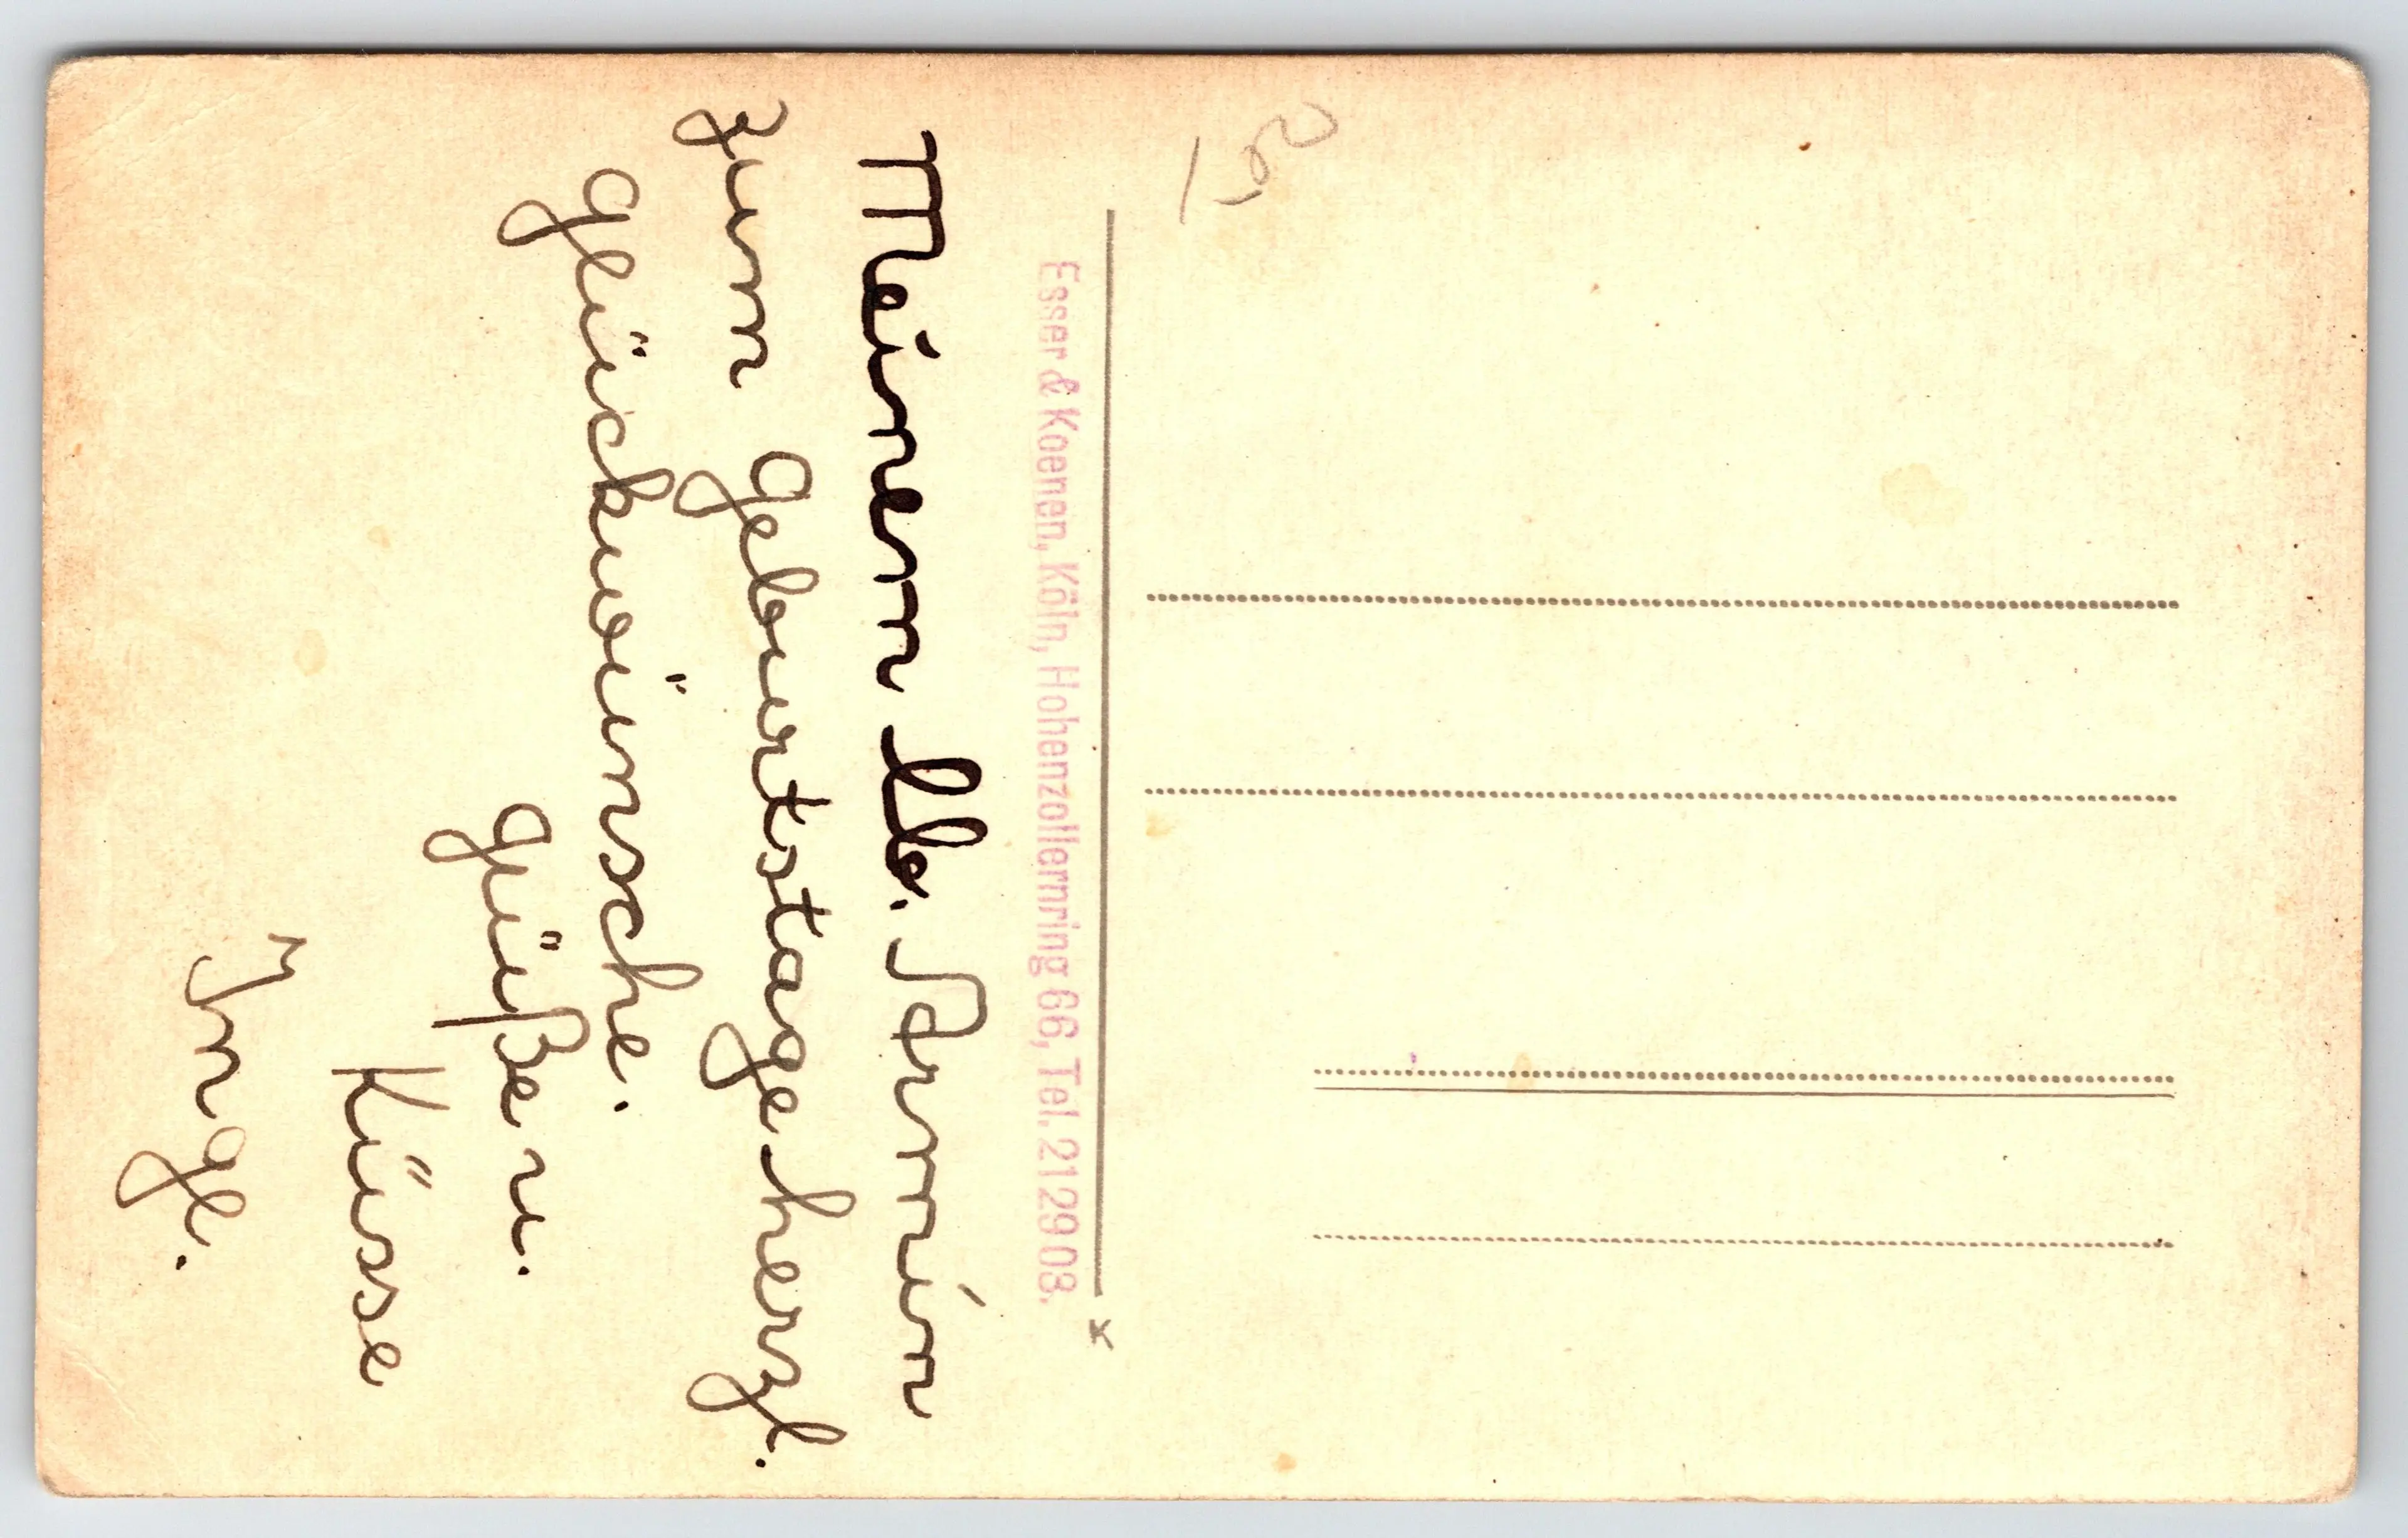 Meinem lb. Armin
zum geburtstage herzl.
glückwünsche.
güße u.
Küsse
Inge.
Esser & Koenen, Köln, Hohenzollernring 66, Tel. 212908.